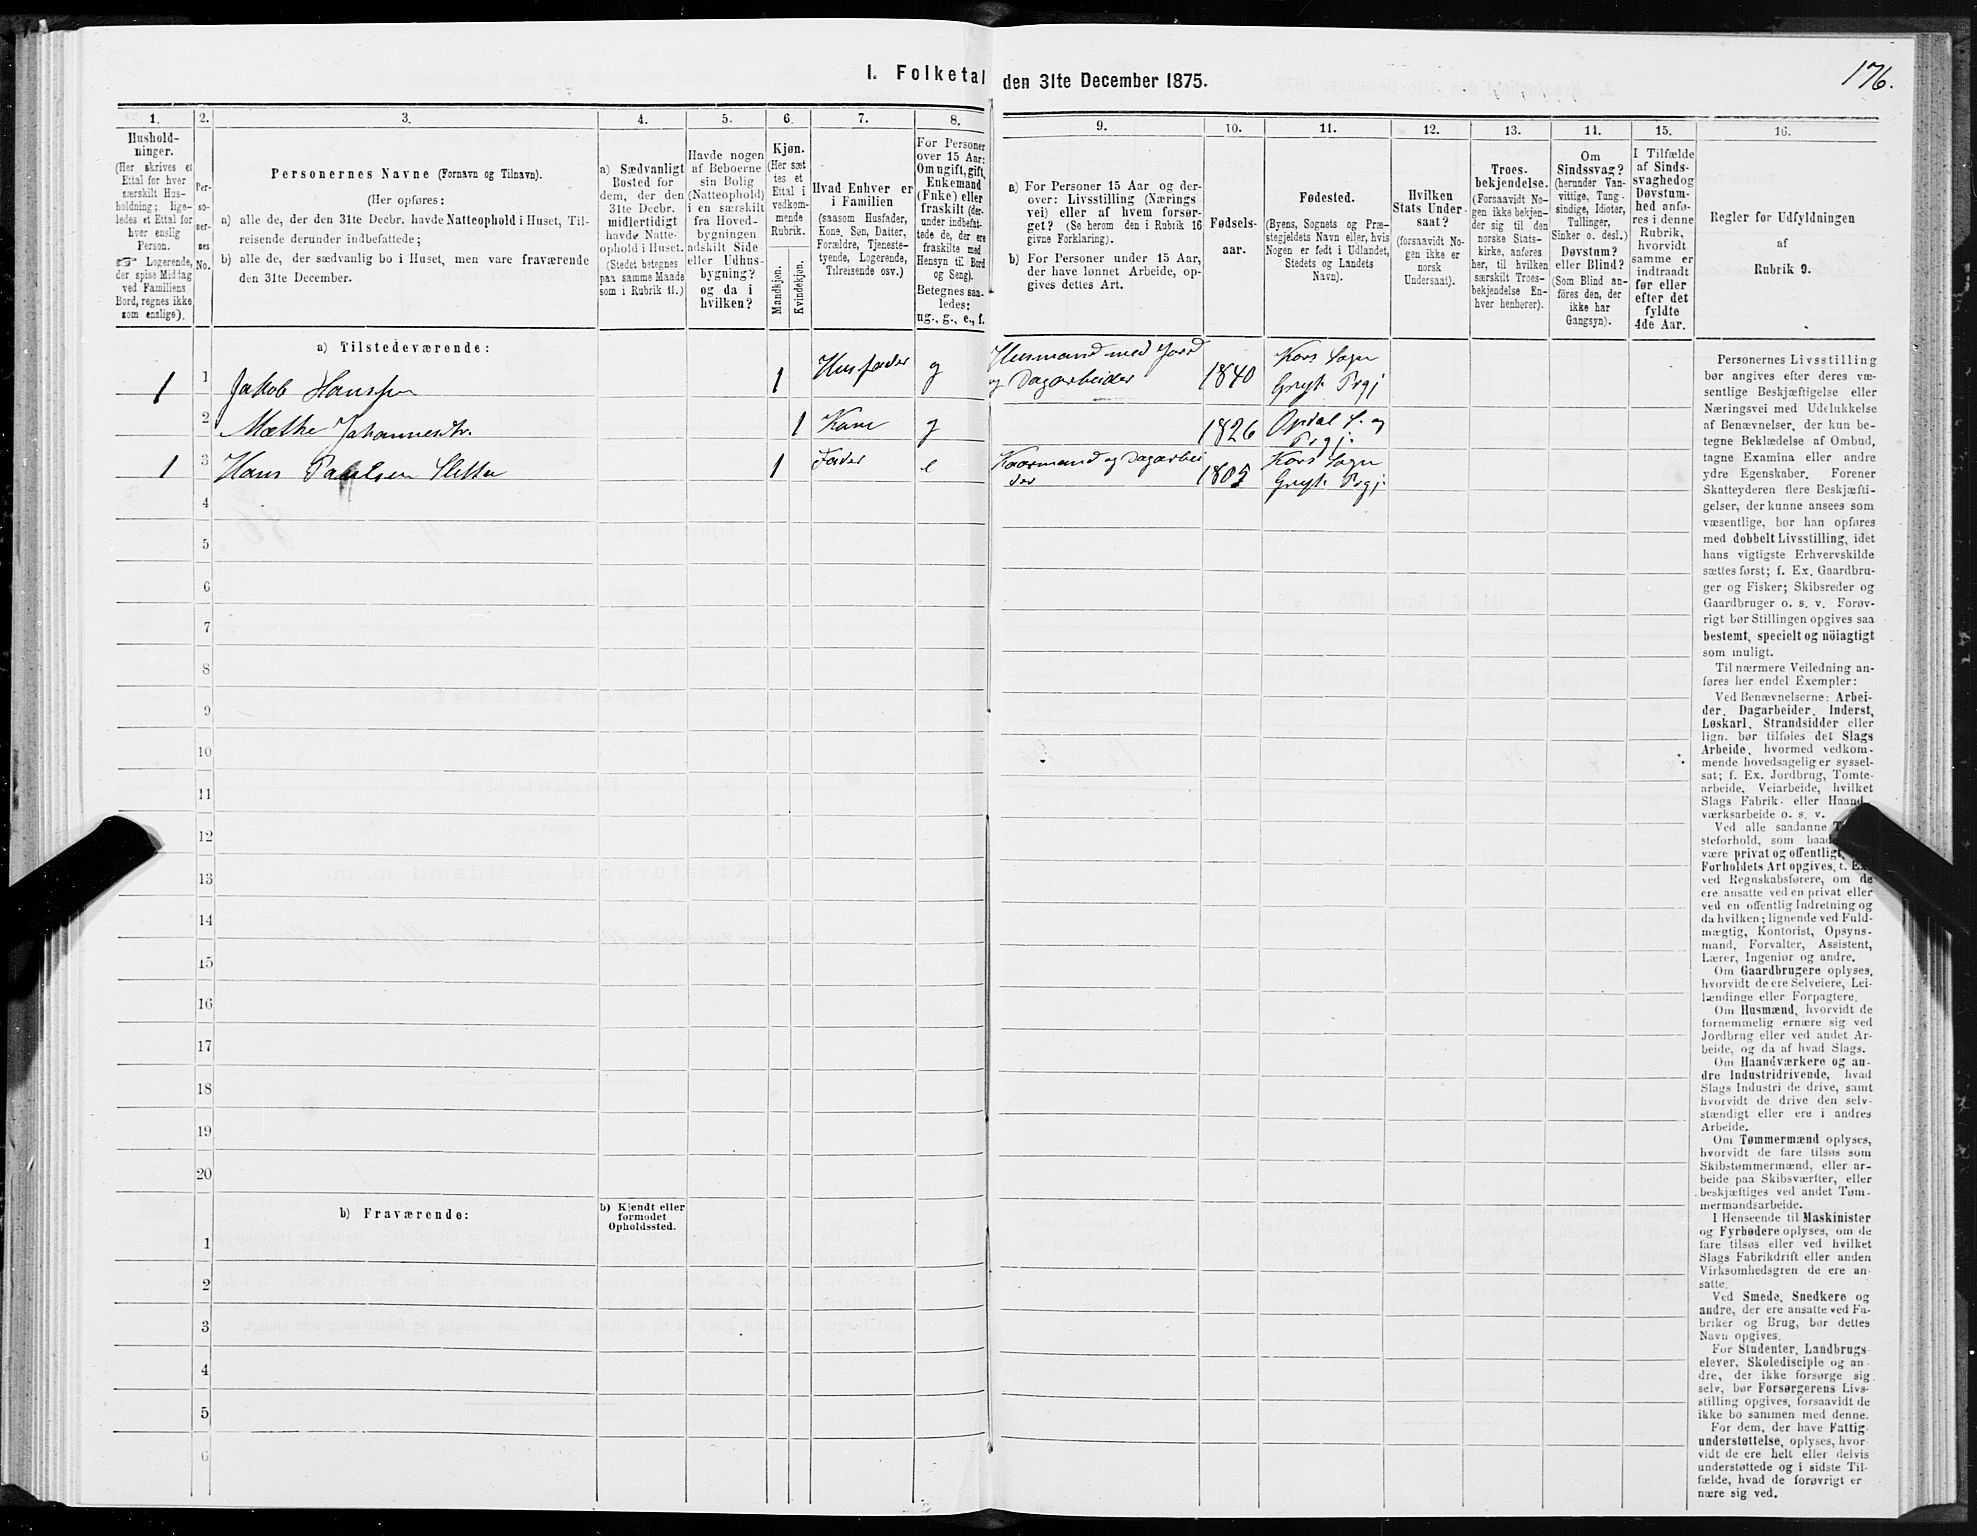 I. Folketal den 31te December 1875.
176.
1.
2.
3.
4.
5.
6.
7.
8.
9.
10.
11.
12.
13.
14.
15.
16.
Hushold-
ninger.
(Her skrives et
Ettal for hver
særskilt Hus-
holdning; lige-
ledes et Ettal for
hver enslig
Person.
☞ Logerende,
der spise Middag
ved Familiens
Bord, regnes ikke
som enslige).
Per-
so-
ner-
nes
No.
Personernes Navne (Fornavn og Tilnavn).
(Her opføres:
a) alle de, der den 31te Decbr. havde Natteophold i Huset, Til-
reisende derunder indbefattede;
b) alle de, der sædvanlig bo i Huset, men vare fraværende
den 31te December.
a) Sædvanligt
Bosted for
dem, der den
31te Decbr.
havde Natte-
midlertidigt
ophold i Huset.
(Stedet betegnes
paa samme Maade
som i Rubrik 11.)
Havde nogen
af Beboerne
sin Bolig
(Natteophold)
i en særskilt
fra Hoved-
bygningen
adskilt Side
eller Udhus-
bygning?
og da i
hvilken?
Kjøn.
(Her sæt
tes et
Ettal i
vedkom-
mende
Rubrik.
Mandkjøn.
Kvindekjøn.
Hvad Enhver er
i Familien
(saasom Husfader,
Kone, Søn, Datter,
Forældre, Tjeneste-
tyende, Logerende,
Tilreisende osv.)
For Personer
over 15 Aar:
Om ugift, gift,
Enkemand
(Enke) eller
fraskilt (der-
under indbefat-
tede de, der ere
fraskilte med
Hensyn til Bord
og Seng).
Betegnes saa-
ledes:
ug., g., e., f.
a) For Personer 15 Aar og der-
over: Livsstilling (Nærings
vei) eller af hvem forsør-
get? (Se herom den i Rubrik 16
givne Forklaring).
b) For Personer under 15 Aar,
der have lønnet Arbeide, op-
gives dettes Art.
Fødsels-
aar.
Fødested.
(Byens, Sognets og Præ-
stegjeldets Navn eller, hvis
Nogen er født i Udlandet,
Stedets og Landets
Navn).
Hvilken
Stats Under-
saat?
(forsaavidt No-
gen ikke er
norsk
Undersaat).
Troes-
bekjendelse.
(Forsaavidt No-
gen ikke bekjen-
der sig til den
norske Stats-
kirke, anføres
her, til hvilken
særskilt Troes-
bekjendelse En-
hver henhører).
Om
Sindssvag?
(herunder Van-
vittige, Tung-
sindige, Idioter,
Tullinger,
Sinker o. desl.)
Døvstum?
eller Blind?
(Som Blind an-
føres den, der
ikke har
Gangsyn).
I Tilfælde
af Sinds-
svaghed og
Døvstum-
hed anfø-
res i denne
Rubrik,
hvorvidt
samme er
indtraadt
før eller
efter det
fyldte
4de Aar.
Regler for Udfyldningen
af
Rubrik 9.
a) Tilstedeværende:
1 1 Jakob Hanssen 1 Husfader g Husmand med Jord
og Dagarbeider 1840 Kors Sogn
Gryt. Prgj
2 Mæthe Johannesdtr. 1 Kone g 1826 Opdal S. og
Prgj.
1 3 Hans Paulsen Sletta 1 Fader e Kaarmand og Dagarbei
der 1805 Kors Sogn
Gryt. Prgj
4
5
6
7
8
9
10
11
12
13
14
15
16
17
18
19
20
b) Fraværende:
b) Kjendt eller
formodet
Opholdssted.
1
2
3
4
5
6
Personernes Livsstilling
bør angives efter deres væ-
sentlige Beskjæftigelse eller
Næringsvei med Udelukkelse
af Benævnelser, der kun be-
tegne Beklædelse af Ombud,
tagne Examina eller andre
ydre Egenskaber. Forener
Skatteyderen flere Beskjæfti-
gelser, der kunne ansees som
væsentlige, bør han opføres
med dobbelt Livsstilling, idet
hans vigtigste Erhvervskilde
sættes først; f. Ex. Gaardbru-
ger og Fisker; Skibsreder og
Gaardbruger o. s. v. Forøv-
rigt bør Stillingen opgives saa
bestemt, specielt og nöiagtigt
som muligt.
Til nærmere Veiledning an-
føres her endel Exempler:
Ved Benævnelserne: Arbei-
der, Dagarbeider, Inderst,
Løskarl, Strandsidder eller
lign. bør tilføies det Slags
Arbeide, hvormed vedkom-
mende hovedsagelig er syssel-
sat; f. Ex. Jordbrug, Tomte-
arbeide, Veiarbeide, hvilket
Slags Fabrik- eller Haand-
værksarbeide o. s. v.
Ved alle saadanne
steforhold, som
være privat og offentligt,
Forholdets Art opgives,
ved Regnskabsførere, om de
ere ansatte ved en privat eller
ved en offentlig Indretning og
da hvilken; lignende ved Fuld-
mægtig, Kontorist, Opsyns-
mand, Forvalter, Assistent,
Lærer, Ingeniør og andre.
Om Gaardbrugere oplyses,
hvorvidt de ere Selveiere, Lei-
lændinge eller Forpagtere.
Om Husmænd, hvorvidt de
fornemmelig ernære sig ved
Jordbrug eller ved andet Ar-
beide, og da af hvad Slags.
Om Haandværkere og an-
dre Industridrivende, hvad
Slags Industri de drive, samt
hvorvidt de drive den selv-
stændigt eller ere i andres
Arbeide.
Om Tømmermænd oplyses,
hvorvidt de fare tilsøs som
Skibstømmermænd, eller ar-
beide paa Skibsværfter, eller
beskjæftiges ved andet Tøm-
mermandsarbeide.
I Henseende til Maskinister
og Fyrbødere oplyses, om de
fare tilsøs eller ved hvilket
Slags Fabrikdrift eller anden
Virksomhedsgren de ere an-
satte.
Ved Smede, Snedkere og
andre, der ere ansatte ved Fa-
briker og Brug, bør dettes
Navn opgives.
For Studenter, Landbrugs-
elever, Skoledisciple og an-
dre, der ikke forsørge sig
selv, bør Forsørgerens Livs-
stilling opgives, forsaavidt de
ikke bo sammen med denne.
For dem, der have Fattig-
understøttelse, oplyses, hvor-
vidt de ere helt eller delvis
understøttede og i sidste Til-
fælde, hvad de forøvrigt er-
nære sig ved.